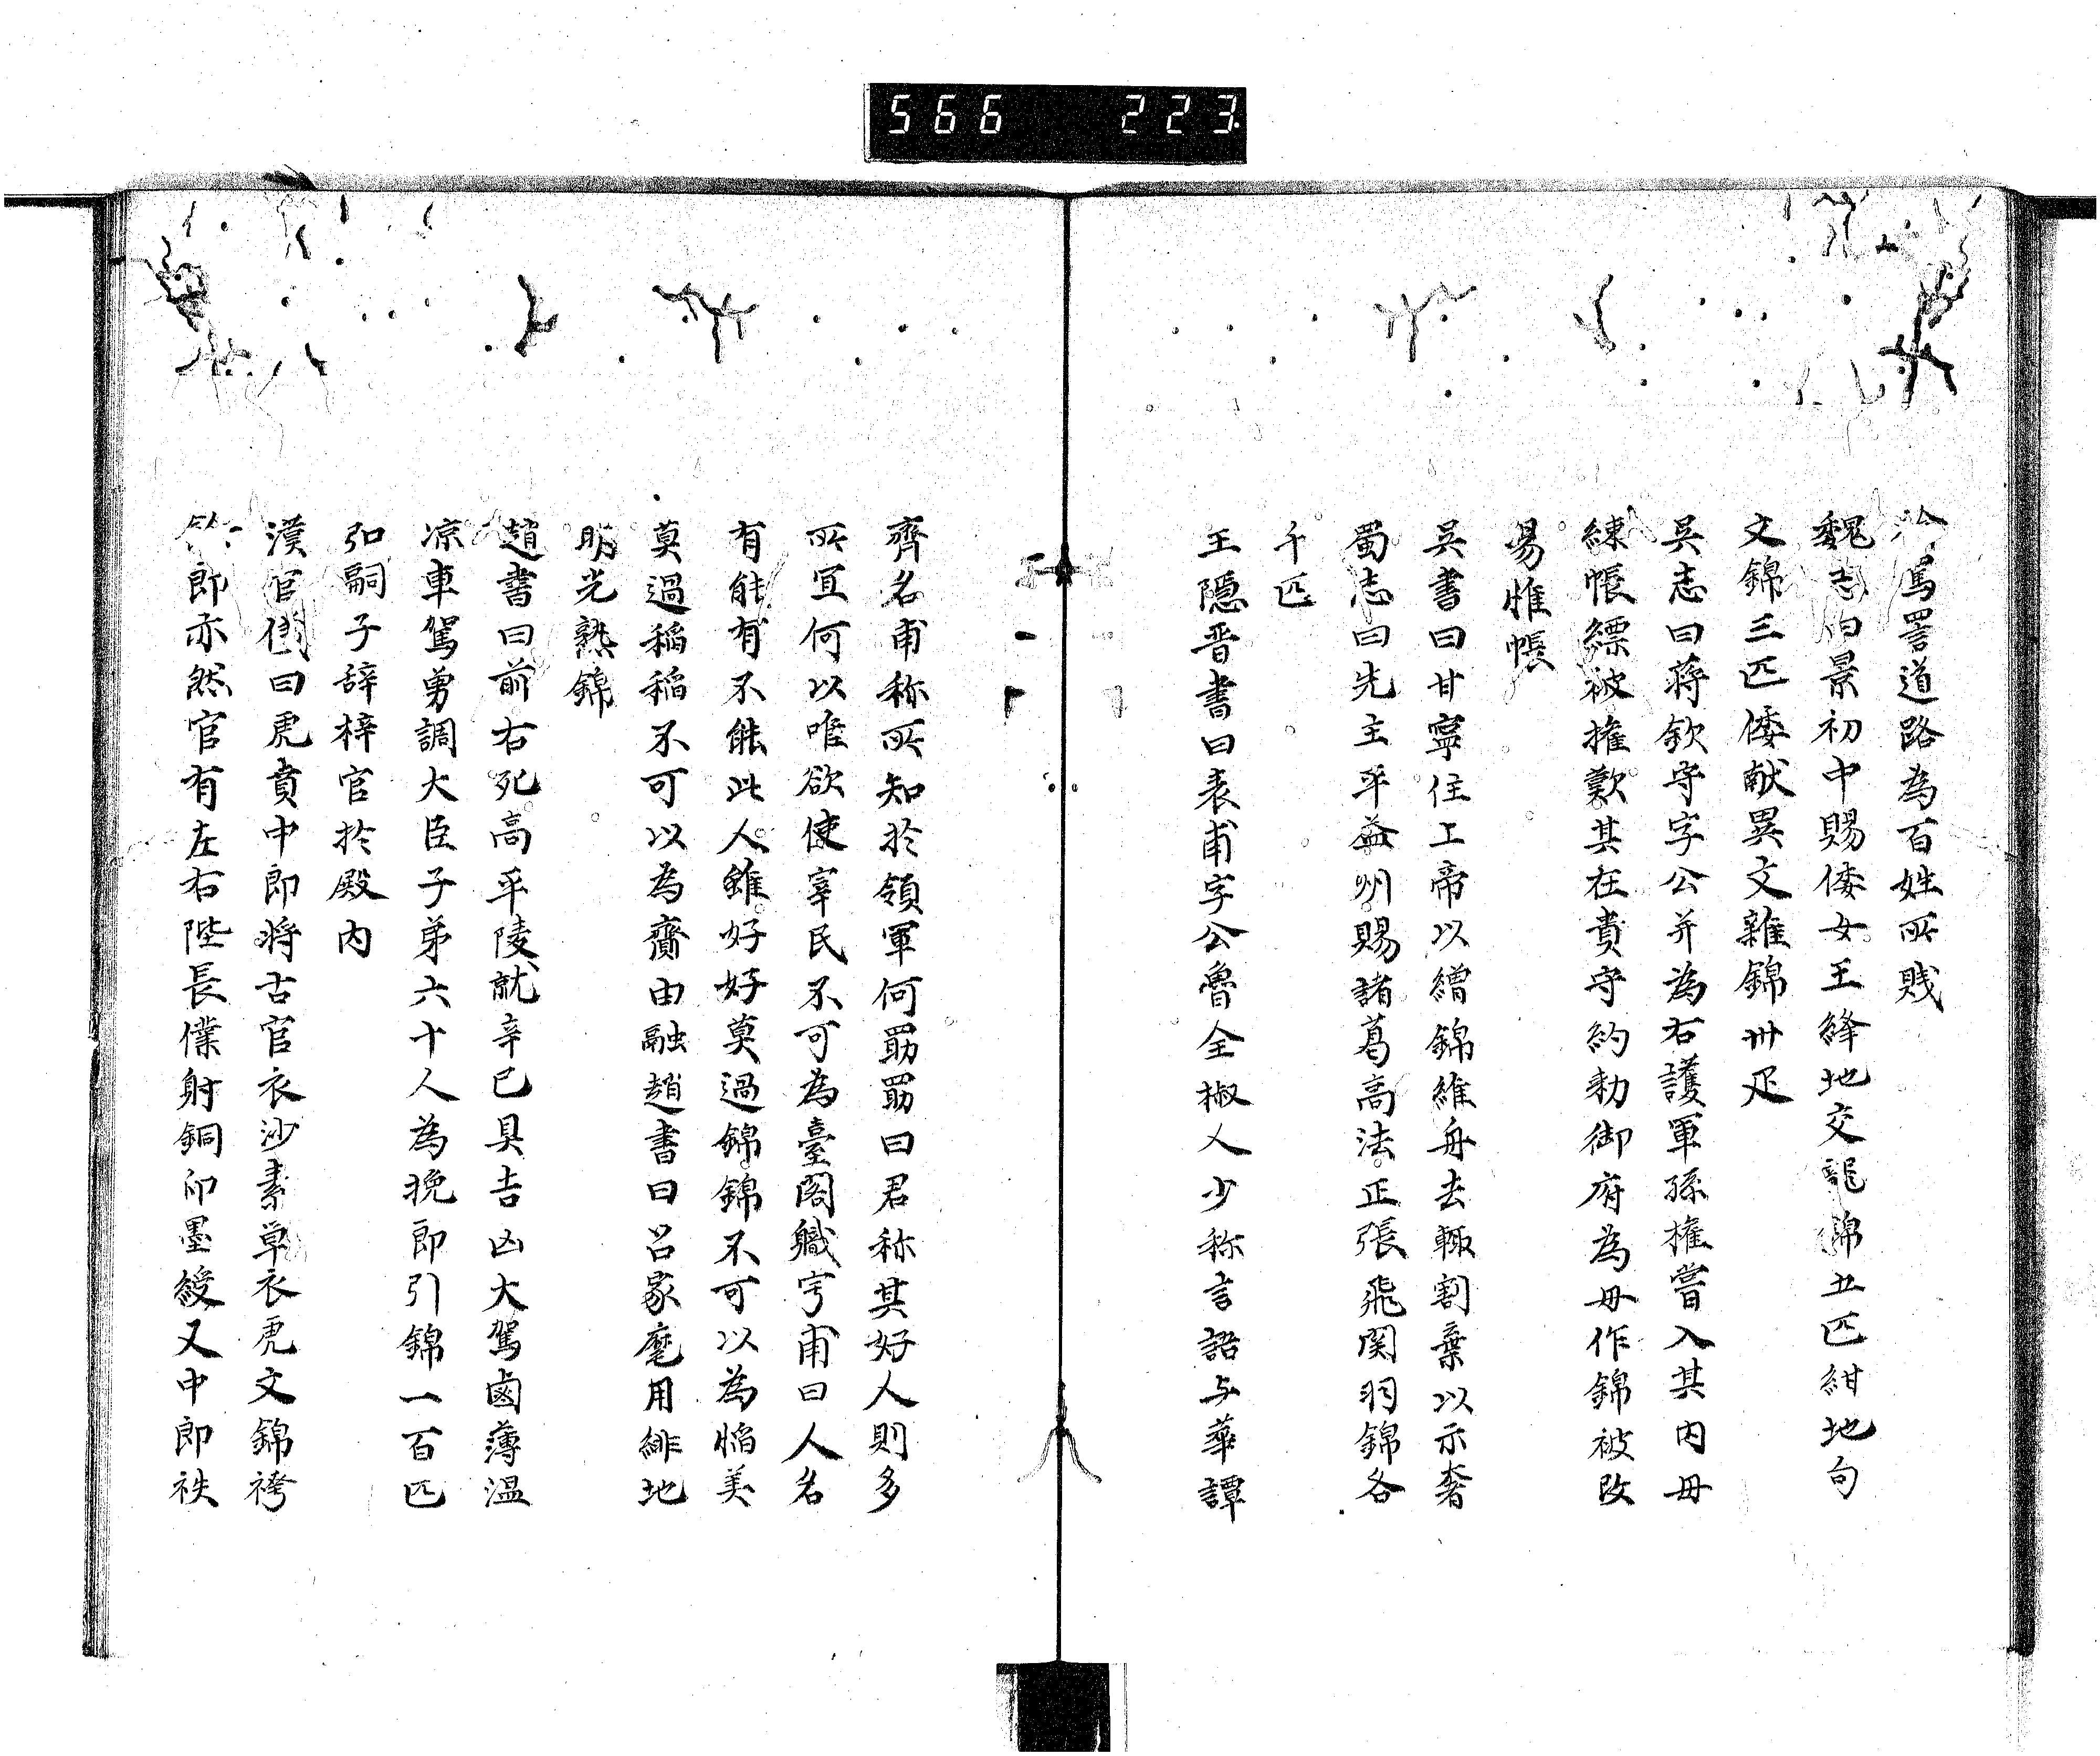 566 223
罵詈道路為百姓所賎
魏志曰景初中賜倭女王絳地交龍錦五匹紺地句
文錦三匹倭献異文雜錦卅疋
吳志曰蒋欽守字公弈為右護軍孫權嘗入其内毋
練帳縹被權歎其在貴守約勑御府為毋作錦被改
易惟帳
吳書曰甘寧住上帝以繒錦維舟去輙割棄以示奢
蜀志曰先主平益州賜諸葛高法正張飛関羽錦各
千匹
王隱晋書曰表甫字公魯全椒人少称言語与華譚
齊名甫称所知於領軍何勗勗曰君称其好人則多
所宜何以唯欲使宰民不可為臺閣軄亨甫曰人名
有能有不能此人雖好好莫過錦錦不可以為慆美
莫過稲稲不可以為齎由融趙書曰呂家麾用緋地
明光熟錦
趙書曰前右死高平陵就辛已具吉凶大駕鹵薄温
凉車駕勇調大臣子弟六十人為挽郎引錦一百匹
弘嗣子辞梓官於殿内
漢官儀曰虎賁中郎将古官衣沙素單衣虎文錦袴
郎亦然官有左右陛長僕射銅印墨綬又中郎袟